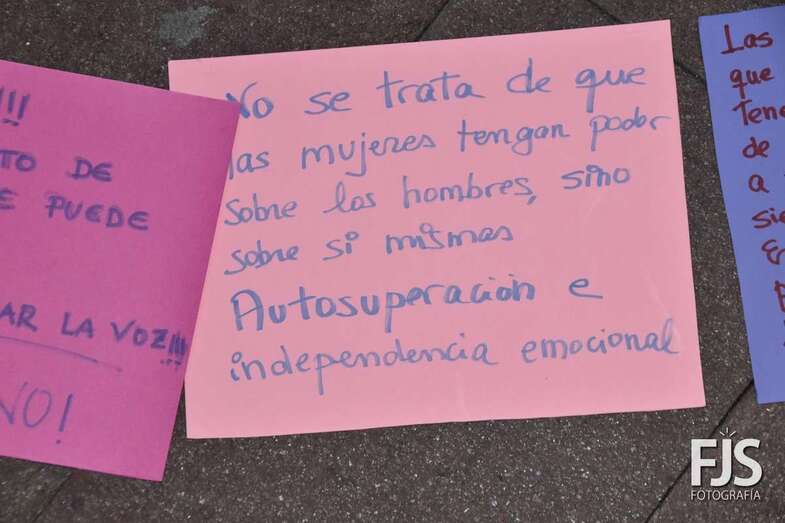 !!!
TO DE
E PUEDE
AR LA VOZ!!!
NO!
No se trata de que
las mujeres tengan poder
sobre los hombres, sino
sobre si mismas
Autosuperación e
independencia emocional
Las
que
Tene
de
a
sie
FJS
FOTOGRAFÍA